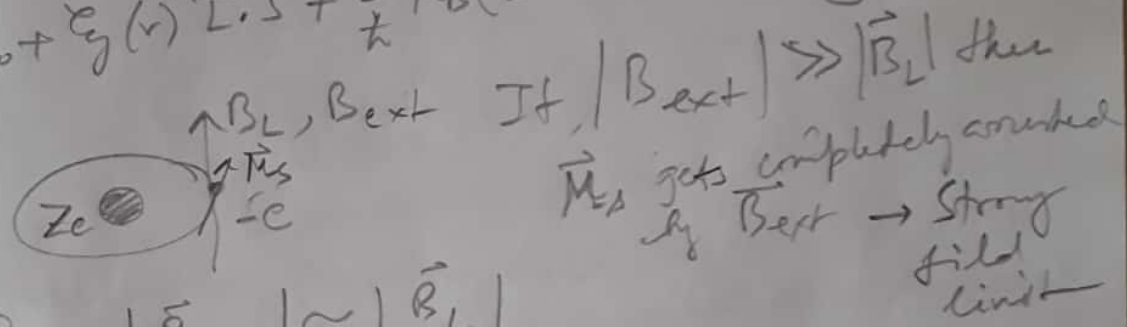 ₀ + ξ(r) L.S +
ħ
B_L, B_ext If, |B_ext| >> |B⃗_L| then
μ⃗_s
Ze
-e
μ⃗_s gets completely
by B⃗_ext → Strong
field
limit
| ~ | B⃗_L |